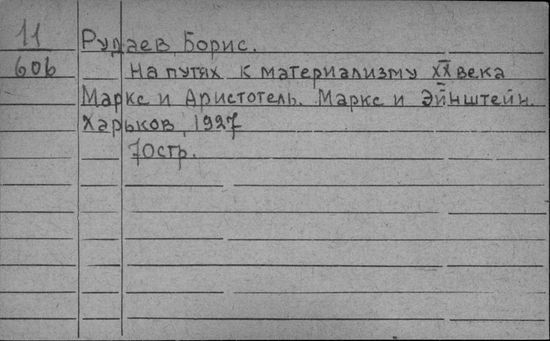 11
606
Рудаев Борис.
На путях к материализму XX века
Маркс и Аристотель. Маркс и Эйнштейн.
Харьков, 1927
70стр.